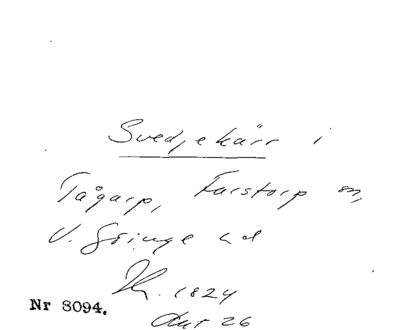 Svedjekärr i
Tågarp, Farstorp sn,
V. Göinge hd
1824
Nr 8094.
Akt 26